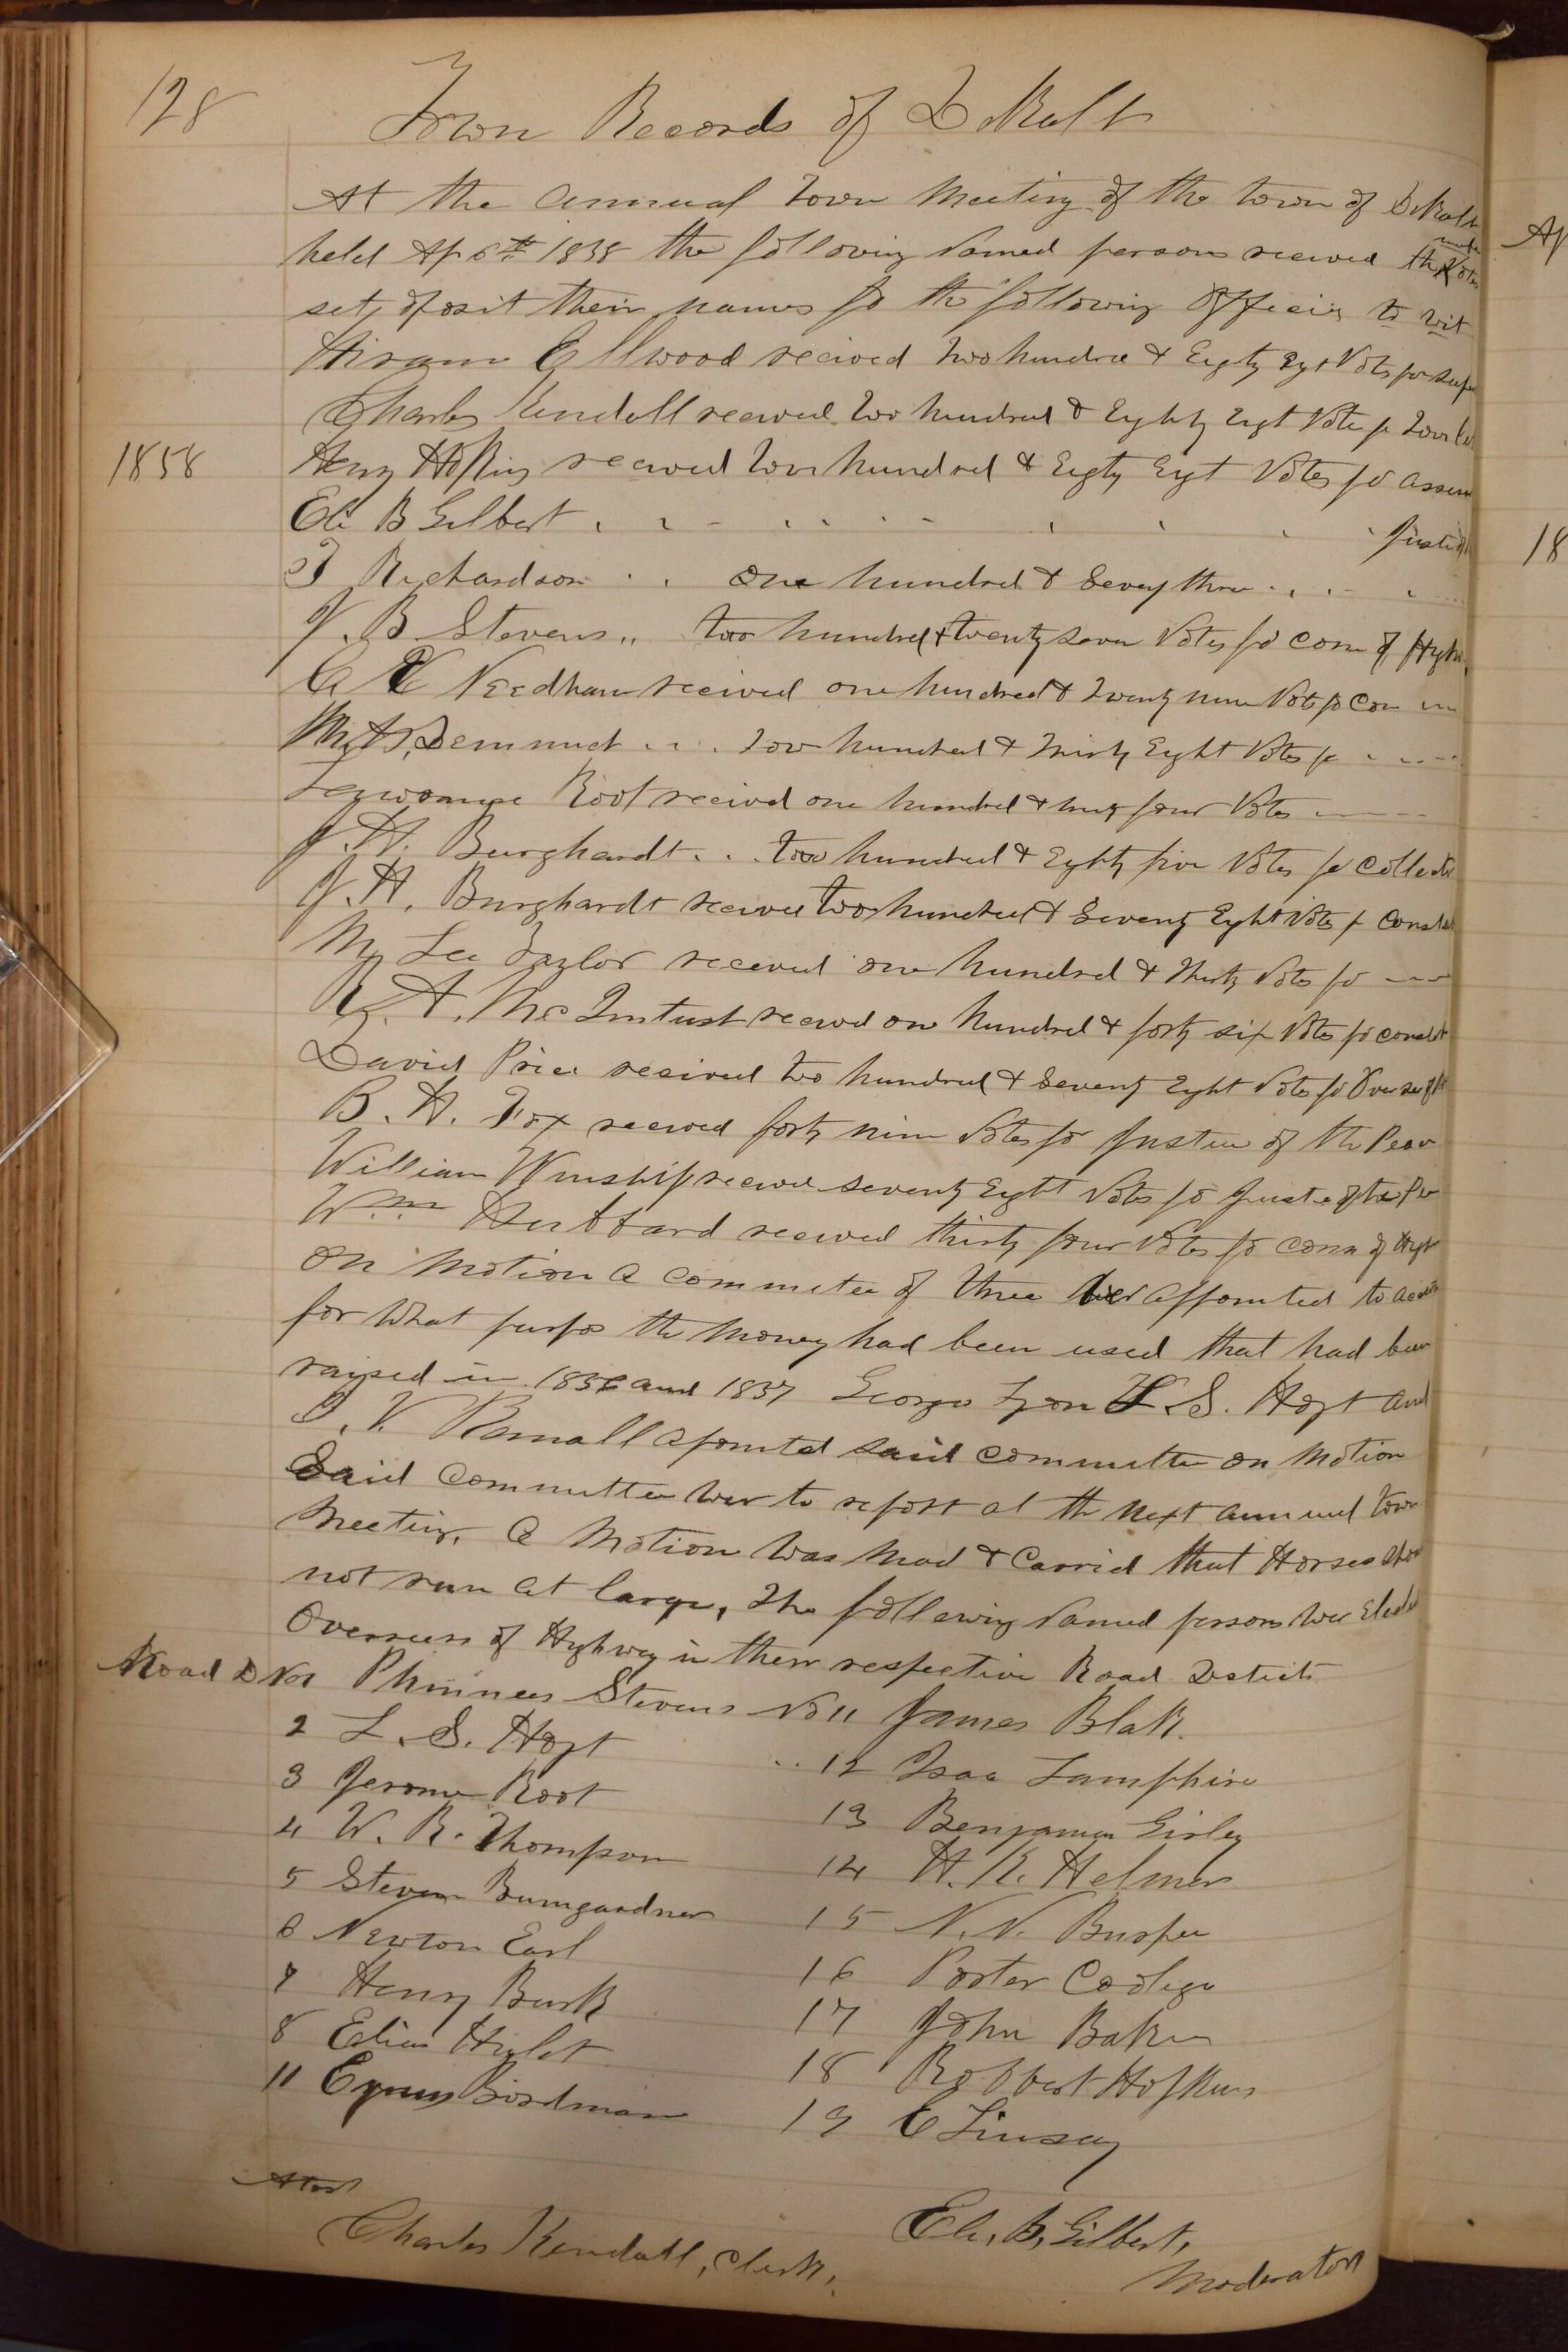 128
Town Records of DeKalb
At the annual Town Meeting of the town of DeKalb
held Ap 6th 1858 the following Named persons received the Votes
set oposit their names fo the following Officies to wit
Hiram Ellwood recived Two hundred & Eighty Eyt Vots for Sup
Charles Kendall received Two hundred & Eighty Eigt Vote fo
1858
Henry Hopkins received two hundred & Eigty Eigt Votes fo Assess
Eli B Gilbert . . - . . . - . . . . Justic
Richardson . . one hundred & Seveny three . . . .
J. B Stevens ,, two hundred & twenty seven Votes fo Com of Hyh
Needham received one hundred & Twenty nine Vots fo Com
Demmuct . . . . two hundred & Thirty Eight Votes fo . . . .
Root recived one hundred & four Votes
J. H. Burghardt . . . two hundred & Eighty five Votes fo Collecto
J. H. Burghardt received Two hundred & Seventy Eight Vots fo Constab
Lee Taylor received one hundred & Thirty Vots fo
A. McIntust received one hundred & forty six Votes fo const
David Price recived two hundred & Seventy Eght Vots fo Over
B. H. Fox received forty nine Votes for Justice of the Peac
William Winship received seventy Eight Votes fo of the Pe
Wm Hubbard received thirty four Votes fo Com of
On Motion a commitee of three wer appointed to
for What purpos the Money had been used that had been
rayised in 1856 and 1857 George Lyon L. S. Hoyt and
V. apointed said committee on Motion
Said Committee wer to report at the Next annual town
Meeting. A Motion Was Mad & Carried that Horses
not run at large, The following Named persons wer Elected
Overseers of Hyhway in there respective Road Destricts
Road D No 1 Phinnees Stevens No 11 James Blak.
2 L. S. Hoyt
12 Isaa Lamphire
3 Jerome Root
13 Benjamin
4 W. R. Thompson
14 H. K. Helmer
5 Steven Bumgardner
15 N. N. Buspee
6 Newton Earl
16 Porter
7 Henry Burk
17 John Baker
8 Elias
18 Robbert Hopkins
11 Cyrus Bordman
19 C Linsay
Attest
Charles Kendall, Clerk.
Eli. B. Gilbert,
Moderator
Ap
18